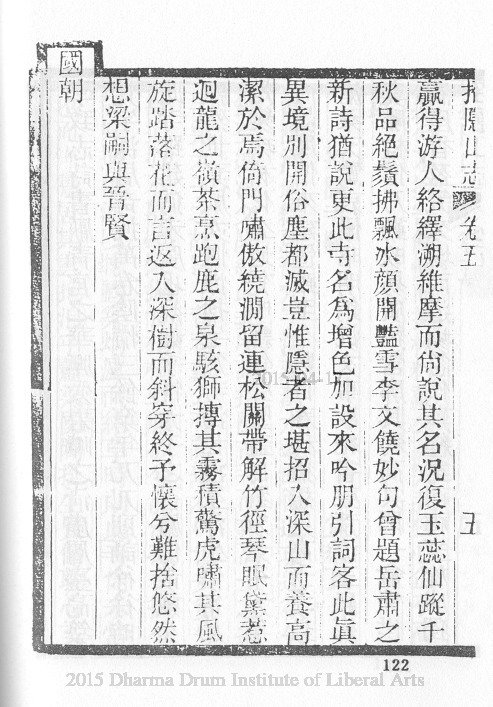 招隱山志 卷五 五
贏得游人絡繹溯維摩而尙說其名況復玉蕊仙蹤千
秋品絕鬚拂飄氷顔開豔雪李文饒妙句曾題岳肅之
新詩猶說更此寺名爲增色加設來吟朋引詞客此眞
異境別開俗塵都滅豈惟隱者之堪招入深山而養高
潔於焉倚門嘯傲繞澗留連松關帶解竹徑琴眠黛惹
迴龍之嶺茶烹跑鹿之泉駭獅摶其霧積驚虎嘯其風
旋踏落花而言返入深樹而斜穿終予懷兮難捨悠然
想梁嗣與晉賢
國朝
2015-04-1
122
2015 Dharma Drum Institute of Liberal Arts